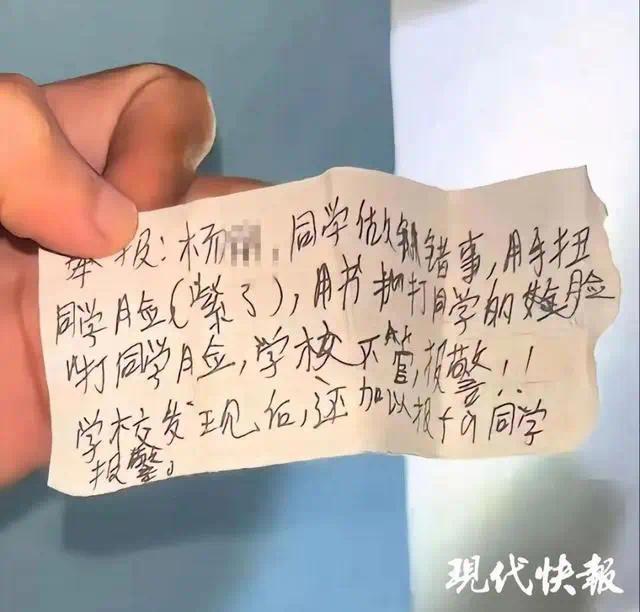 举报:杨 , 同学做错事,用手扭
同学脸(紫了),用书 打同学的 脸
打同学脸,学校不管,报警!!
学校发现后,还加以报 同学
报警。
现代快報